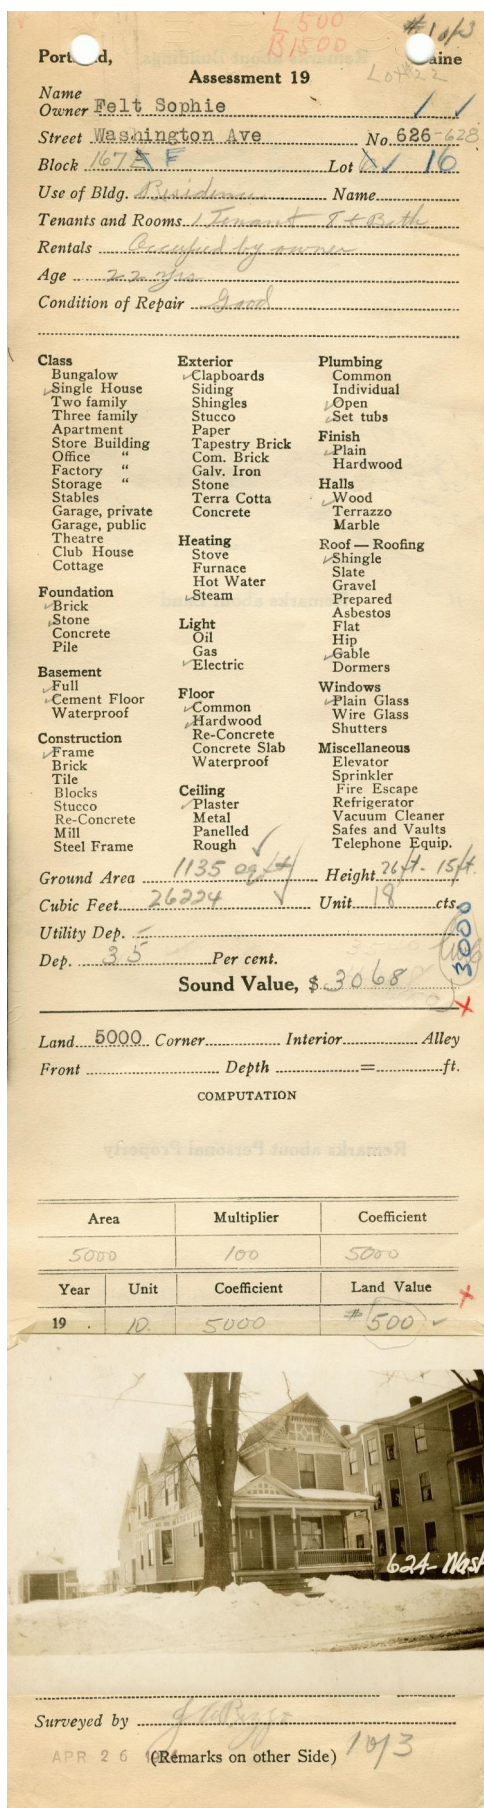 L 500
B 1500
#1 of 3
Portland, Maine
Lot #22
Assessment 19
Name
Owner Felt Sophie
Street Washington Ave No. 626-628
Block 167 F Lot 16
Use of Bldg. Residence Name
Tenants and Rooms 1 Tenant 8 + Bath
Rentals Occupied by owner
Age 22 yrs
Condition of Repair Good
Class
Bungalow
Single House
Two family
Three family
Apartment
Store Building
Office "
Factory "
Storage "
Stables
Garage, private
Garage, public
Theatre
Club House
Cottage
Foundation
Brick
Stone
Concrete
Pile
Basement
Full
Cement Floor
Waterproof
Construction
Frame
Brick
Tile
Blocks
Stucco
Re-Concrete
Mill
Steel Frame
Exterior
Clapboards
Siding
Shingles
Stucco
Paper
Tapestry Brick
Com. Brick
Galv. Iron
Stone
Terra Cotta
Concrete
Heating
Stove
Furnace
Hot Water
Steam
Light
Oil
Gas
Electric
Floor
Common
Hardwood
Re-Concrete
Concrete Slab
Waterproof
Ceiling
Plaster
Metal
Panelled
Rough
Plumbing
Common
Individual
Open
Set tubs
Finish
Plain
Hardwood
Halls
Wood
Terrazzo
Marble
Roof — Roofing
Shingle
Slate
Gravel
Prepared
Asbestos
Flat
Hip
Gable
Dormers
Windows
Plain Glass
Wire Glass
Shutters
Miscellaneous
Elevator
Sprinkler
Fire Escape
Refrigerator
Vacuum Cleaner
Safes and Vaults
Telephone Equip.
Ground Area 1135 sq ft Height 26 ft - 15 ft.
Cubic Feet 26224 Unit 18 cts.
Utility Dep. -
Dep. 35 Per cent.
3000
Sound Value, $ 3068
Land 5000 Corner Interior Alley
Front Depth = ft.
COMPUTATION
Area Multiplier Coefficient
5000 100 5000
Year Unit Coefficient Land Value
19 . 10 5000 $500
624- Wash
Surveyed by
APR 26
(Remarks on other Side) 1 of 3